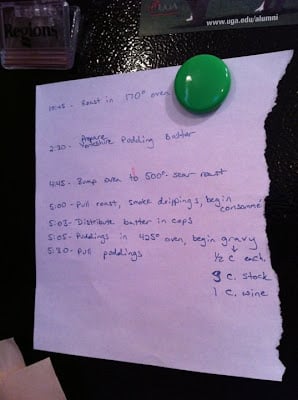 UGA
www.uga.edu/alumni
Regions
10:45 - Roast in 170° oven
Prepare
2:30 - Yorkshire Pudding Batter
4:45 - Bump oven to 500° - sear roast
5:00 - Pull roast, smoke drippings, begin
consommé
5:03 - Distribute batter in cups
5:05 - Puddings in 425° oven, begin gravy
5:30 - Pull puddings
1/2 c each.
3 c. stock
1 c. wine